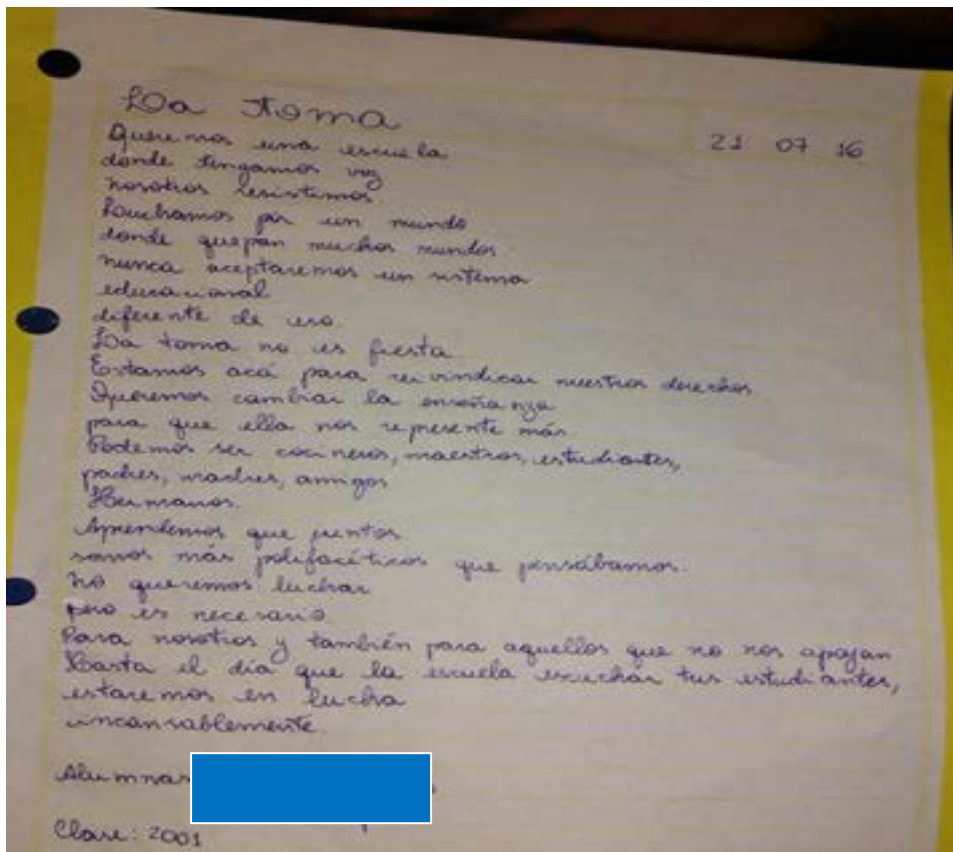 La Toma
21 07 16
Queremos una escuela
donde tengamos voz
nosotros resistimos
Luchamos por un mundo
donde quepan muchos mundos.
nunca aceptaremos un sistema
educacional
diferente de eso.
La toma no es fiesta
Estamos acá para reivindicar nuestros derechos
Queremos cambiar la enseñanza
para que ella nos represente más.
Podemos ser cocineros, maestros, estudiantes,
padres, madres, amigos
Hermanos.
Aprendemos que juntos
somos más polifacéticos que pensábamos.
No queremos luchar
pero es necesario
Para nosotros y también para aquellos que no nos apoyan
Hasta el día que la escuela escuchar tus estudiantes,
estaremos en lucha
incansablemente.
Alumnas
Clase: 2001